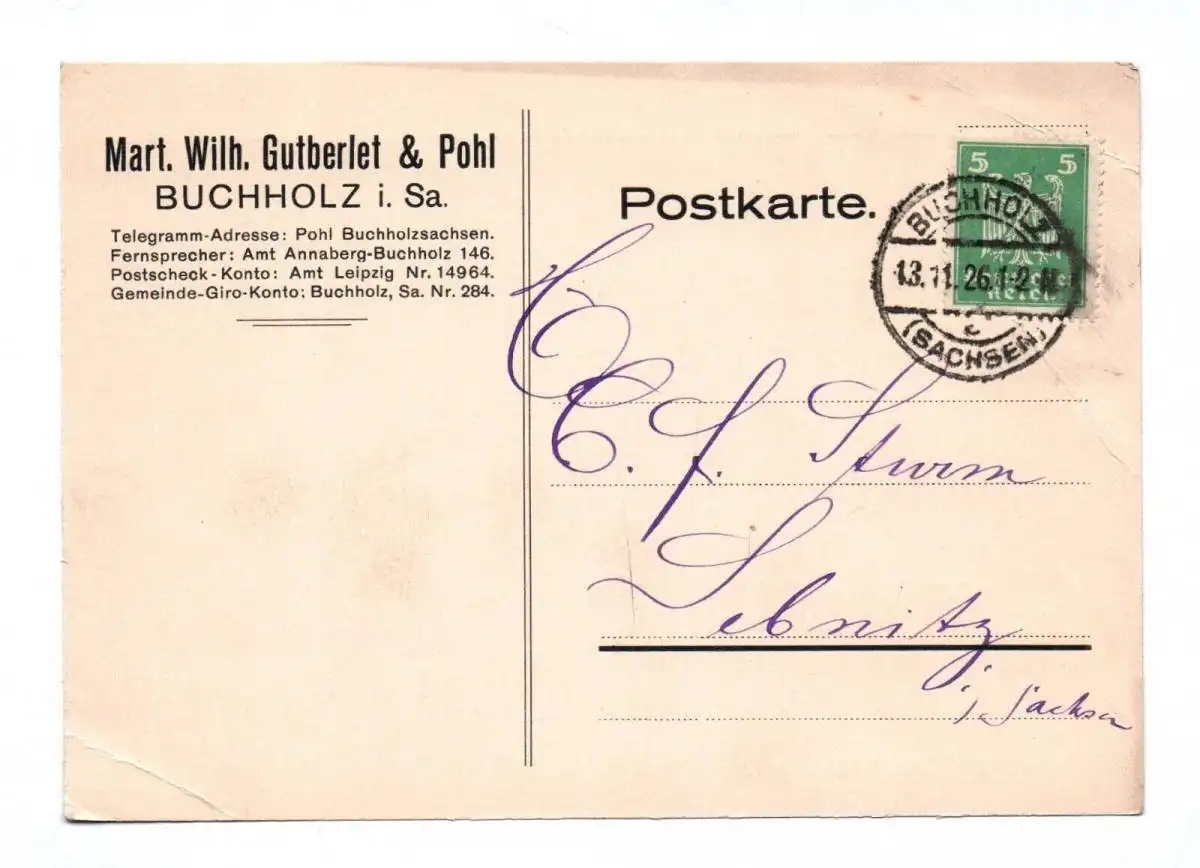 Mart. Wilh. Gutberlet & Pohl
BUCHHOLZ i. Sa.
Telegramm-Adresse: Pohl Buchholzsachsen.
Fernsprecher: Amt Annaberg-Buchholz 146.
Postscheck-Konto: Amt Leipzig Nr. 14964.
Gemeinde-Giro-Konto: Buchholz, Sa. Nr. 284.
Postkarte.
5 5
Reich
BUCHHOLZ
13.11.26.1-2 N.
c
(SACHSEN)
C. F. Sturm
Sebnitz
i. Sachsen